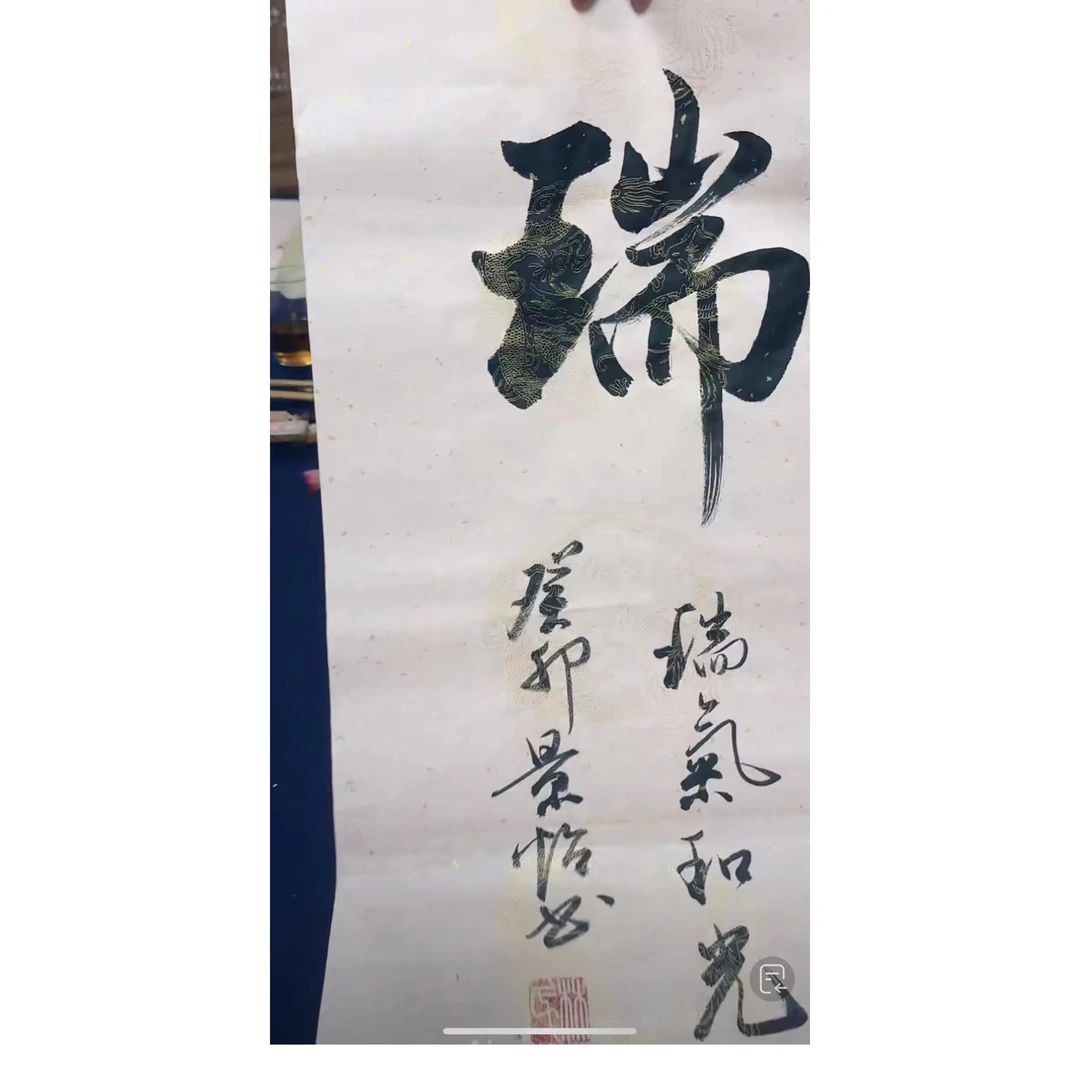 瑞
瑞氣和光
癸卯景怡书